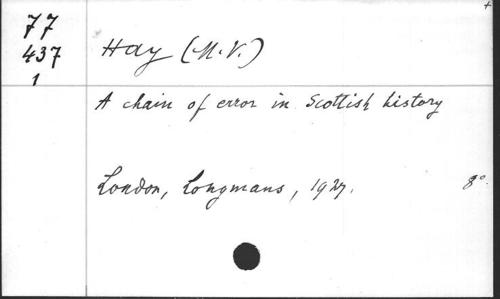 77
437
1
Hay (M.V.)
A chain of error in Scottish history
London, Longmans, 1927. 8°.